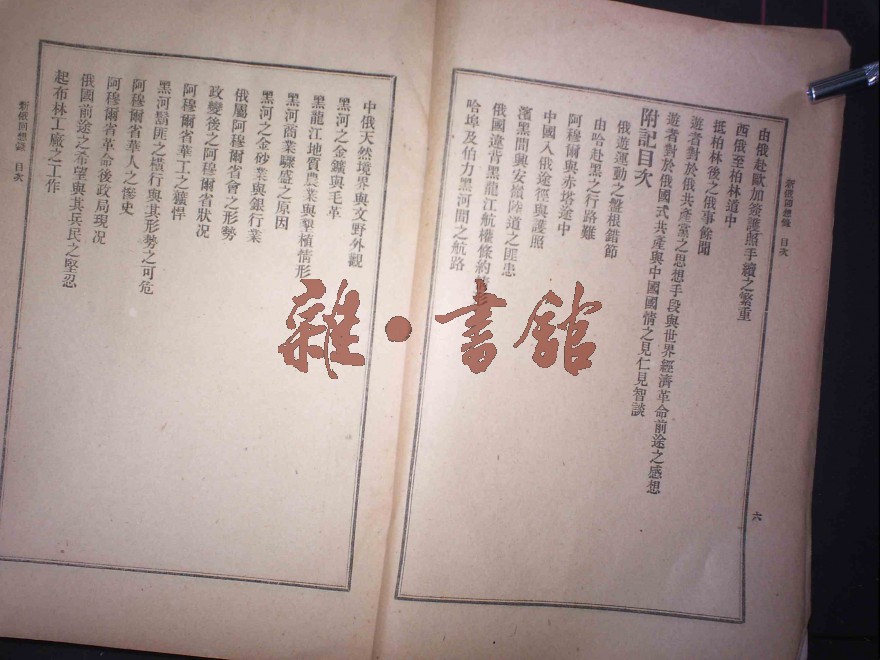 新俄回想錄 目次
六
由俄赴歐加簽護照手續之繁重
西俄至柏林道中
抵柏林後之俄事餘聞
遊者對於俄共產黨之思想手段與世界經濟革命前途之感想
遊者對於俄國式共產與中國國情之見仁見智談
附記目次
俄遊運動之盤根錯節
由哈赴黑之行路難
阿穆爾與赤塔途中
中國入俄途徑與護照
濱黑間興安嶺陸道之匪患
俄國違背黑龍江航權條約
哈埠及伯力黑河間之航路
中俄天然境界與文野外觀
黑河之金鑛與毛革
黑龍江地質農業與墾植情形
黑河商業驟盛之原因
黑河之金砂業與銀行業
俄屬阿穆爾省會之形勢
政變後之阿穆爾省狀况
阿穆爾省華工之蠻悍
黑河鬍匪之橫行與其形勢之可危
阿穆爾省華人之慘史
阿穆爾省革命後政局現况
俄國前途之希望與其兵民之堅忍
起布林工廠之工作
新俄回想錄 目次
雜·書館